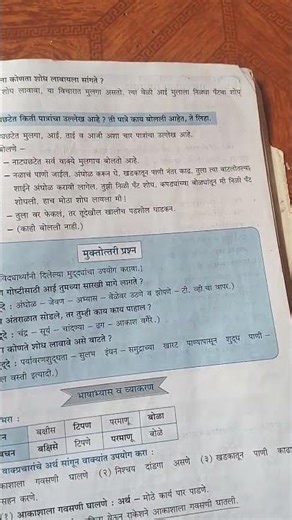 ना कोणता शोध लावायला सांगते ?
शोध लावावा, या विचारात मुलगा असतो. त्या वेळी आई मुलाला निळ्या पँटचा शोध
पाछटेत किती पात्रांचा उल्लेख आहे ? ती पात्रे काय बोलली आहेत, ते लिहा.
पाछटेत मुलगा, आई, ताई व आजी अशा चार पात्रांचा उल्लेख आहे.
बोलणे -
– नाट्यछटेत सर्व वाक्ये मुलगाच बोलतो आहे.
– नळाचं पाणी जाईल. अंघोळ करून घे. खडकातून पाणी नंतर काढ. तुला त्या बाटलीतल्या
शाईने अंघोळ करावी लागेल. तुझी निळी पँट शोध. कपड्यांच्या बोळ्यातून मी निळी पँट
शोधली. हाच मोठा शोध लागला मी।
– तुला वर फेकलं, तर तूदेखील खालीच पडशील धाडकन.
– (काही बोलली नाही.)
मुक्तोत्तरी प्रश्न
विद्यार्थ्यांनी दिलेल्या मुद्द्यांचा उपयोग करावा.)
गोष्टींसाठी आई तुमच्या सारखी मागे लागते ?
: अंघोळ – जेवण – अभ्यास – वेळेवर उठणे व झोपणे – टी. व्ही.चा वापर.)
अंतराळात सोडले, तर तुम्ही काय काय पाहाल ?
: चंद्र – सूर्य – चांदण्या – ढग – आकाश वगैरे.)
कोणते शोध लावावे असे वाटते ?
: पर्यावरणशुद्धता – सुलभ इंधन – समुद्राच्या खारट पाण्यापासून शुद्ध पाणी –
वस्ती इत्यादी.)
भाषाभ्यास व व्याकरण
भरा :
बक्षीस टिपण परमाणू बोळा
वचन बक्षिसे टिपणे परमाणू बोळे
वाक्प्रचारांचे अर्थ सांगून वाक्यांत उपयोग करा :
आकाशाला गवसणी घालणे (२) निश्चय दांडगा असणे (३) खडकातून पाणी काढ
सहन करणे.
(१) आकाशाला गवसणी घालणे : अर्थ – मोठे कार्य पार पाडणे.
येऊन राकेशने आकाशाला गवसणी घातली.